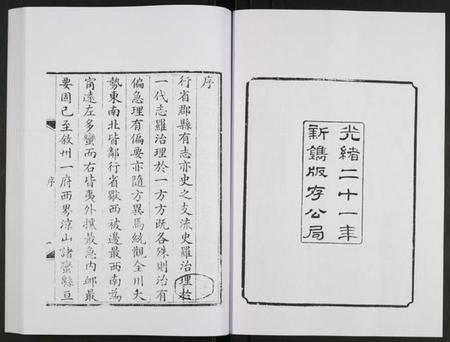 光緒二十一年
新鐫版存公局
序
行省郡縣有志亦史之支流史羅治理於
一代志羅治理於一方方既各殊則治有
偏急理有偏要亦隨方異焉統觀全川大
勢東南北皆鄰行省西被邊最西南為
甯遠左多蠻而右皆夷外攘最急内最
要固已至敘州一府西界涼山諸蠻縣亘
序
一